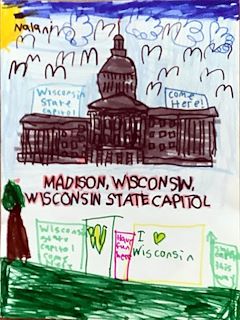 Nalani
Wisconsin
state
capitol
COME
Here!
MADISON, WISCONSIN,
WISCONSIN STATE CAPITOL
Wisconsin
state
capitol
come
W
Have
fun
here
I
Wisconsin
this
way